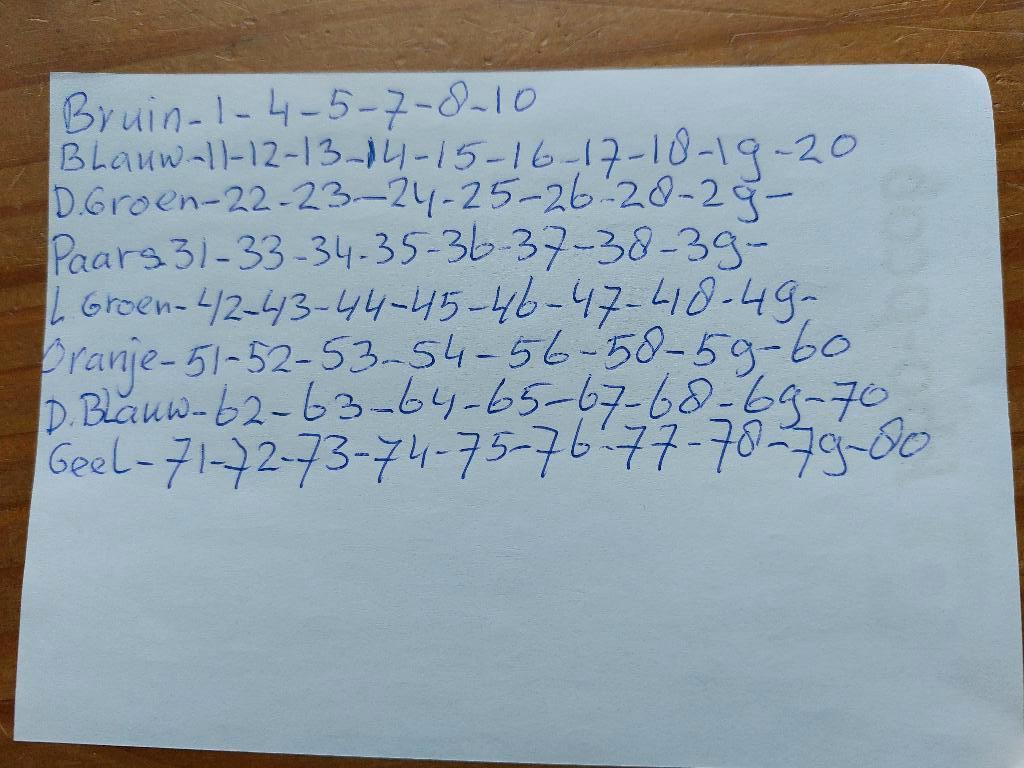 Bruin-1-4-5-7-8-10
Blauw-11-12-13-14-15-16-17-18-19-20
D.Groen-22-23-24-25-26-28-29-
Paars 31-33-34-35-36-37-38-39-
L. Groen-42-43-44-45-46-47-48-49-
Oranje-51-52-53-54-56-58-59-60
D.Blauw-62-63-64-65-67-68-69-70
Geel-71-72-73-74-75-76-77-78-79-80